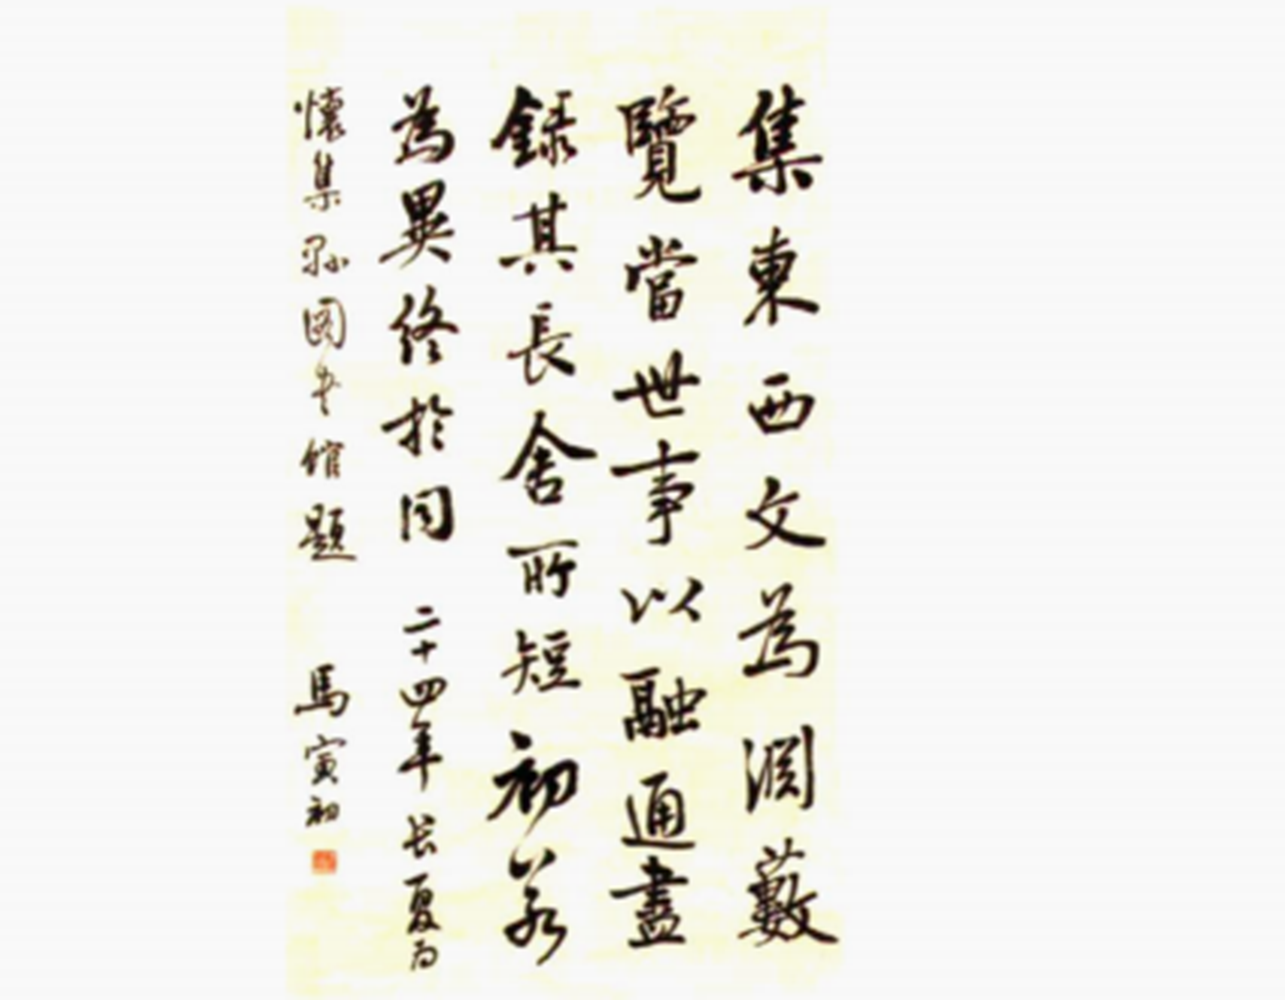 集東西文為淵藪
覽當世事以融通盡
録其長舍所短初若
為異終於同 二十四年長夏為
懷集縣圖書館題 馬寅初